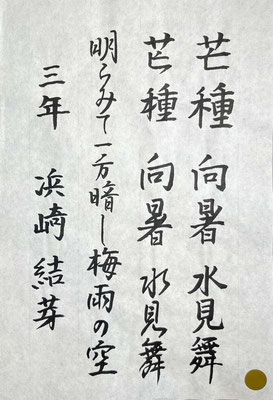 芒種 向暑 水見舞
芒種 向暑 水見舞
明らみて一方暗し梅雨の空
三年 浜崎結芽